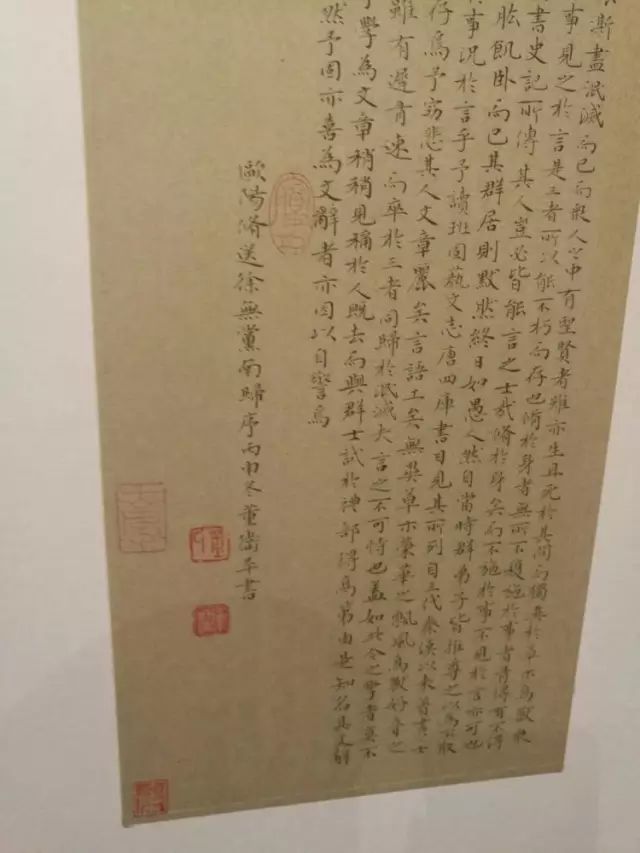 澌盡泯滅而已而衆人之中有聖賢者雖亦生且死於其間而獨異於草木鳥獸衆
事見之於言是三者所以能不朽而存也脩於身者無所不獲施於事者有得有不得
書史記所傳其人豈必皆能言之士哉脩於身矣而不施於事不見於言亦可也
肱飢臥而已其群居則默然終日如愚人然自當時群弟子皆推尊之以為不敢
事況於言乎予讀班固藝文志唐四庫書目見其所列自三代秦漢以來著書士
存焉予竊悲其人文章麗矣言語工矣無異草木榮華之飄風鳥獸好音之
雖有遲有速而卒於三者同歸於泯滅夫言之不可恃也蓋如此今之學者莫不
學為文章稍稍見稱於人既去而與群士試於禮部得高第由是知名其文辭
然予固亦喜為文辭者亦因以自警焉
歐陽脩送徐無黨南歸序丙申冬董平書